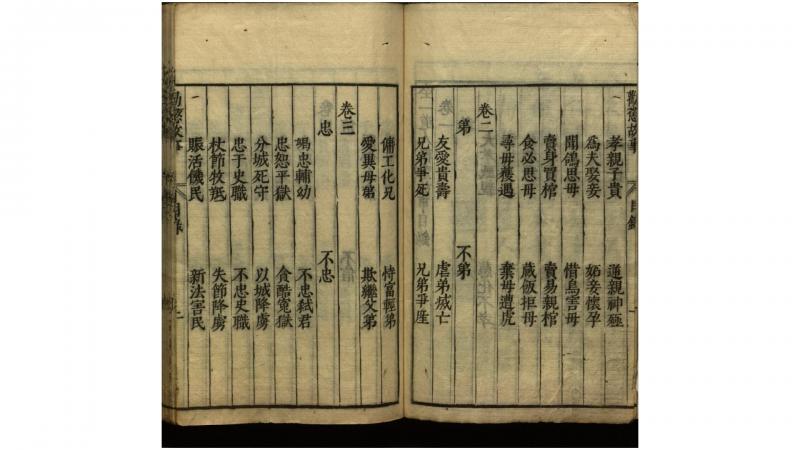 勸懲故事 目錄
孝親子貴 逆親神殛
爲夫娶妾 妬妾懷孕
聞鴿思母 借烏害母
賣身買棺 賣易親棺
食必思母 藏飯拒母
尋母獲遇 棄母遭虎
卷二
弟 不弟
友愛貴壽 虐弟烕亡
兄弟爭死 兄弟爭産
傭工化兄 恃富輕弟
愛異母弟 欺繼父弟
卷三
忠 不忠
竭忠輔幼 不忠弒君
忠恕平獄 貪酷寃獄
分城死守 以城降虜
忠于史職 不忠史職
杖節牧羝 失節降虜
賑活饑民 新法害民
勸懲故事 目錄